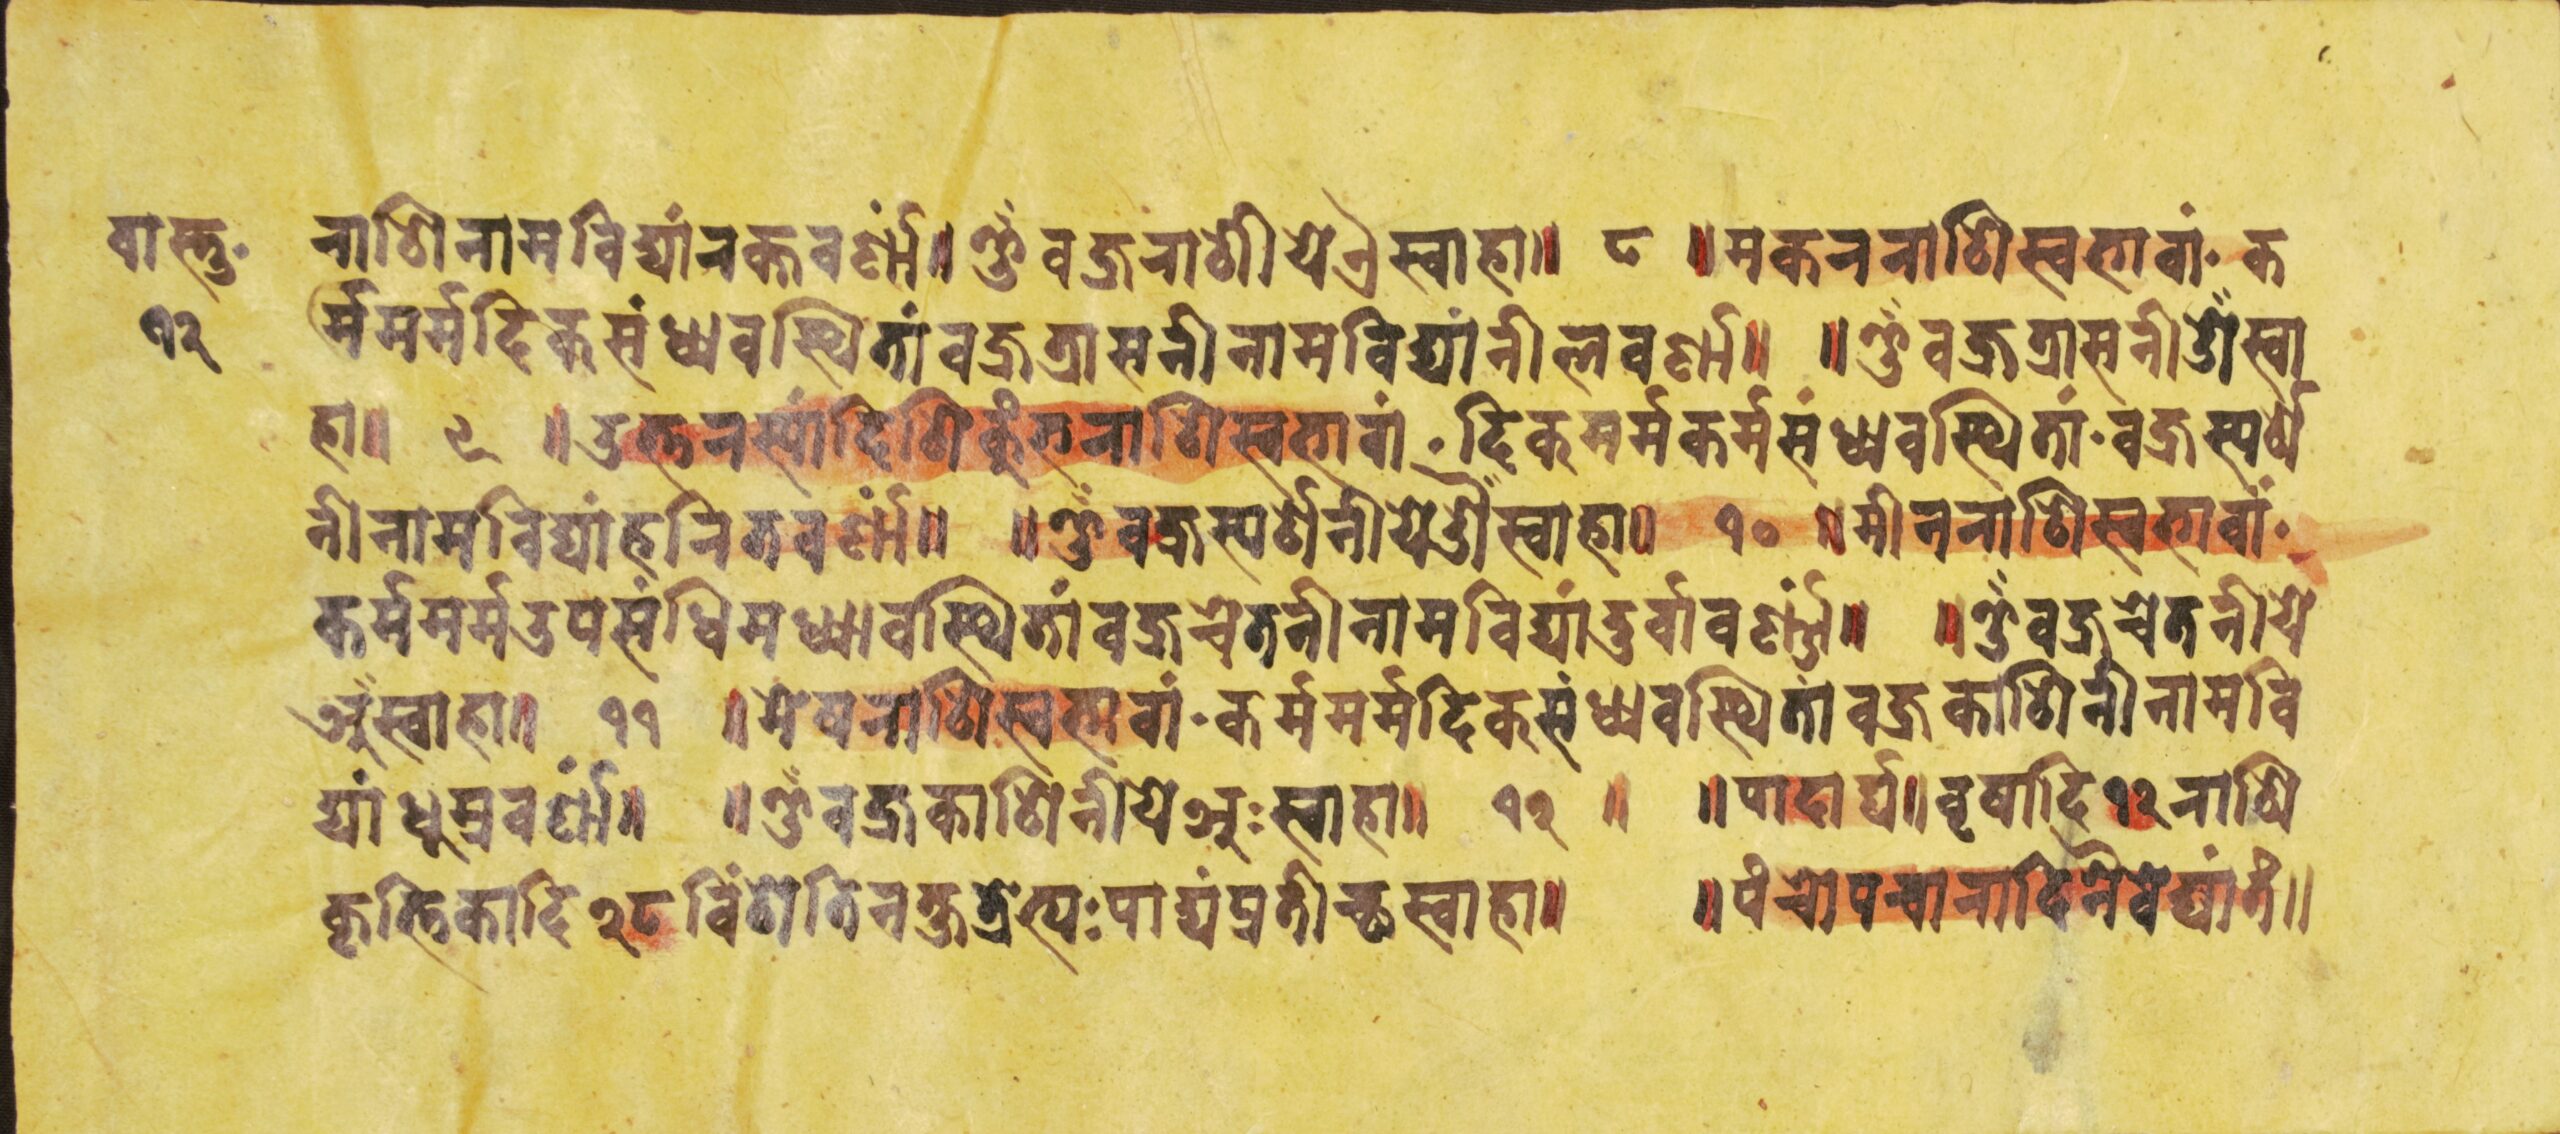 वास्तु· नाशिनामविद्यांनक्तवर्णां॥ॐवज्रनाशीयेऐस्वाहा॥ ८ ॥मकननाशिस्वभावां·क
१२ र्ममर्मदिकसंध्यवस्थितांवज्रत्रासनीनामविद्यांनीलवर्णा॥ ॥ॐवज्रत्रासनीओँस्वा
हा॥ ९ ॥उत्तनस्यांदिशिकुंभनाशिस्वभावां·दिकमर्मकर्मसंध्यवस्थितां·वज्रस्पर्श
नीनामविद्यांहनितवर्णां॥ ॥ॐवज्रस्पर्शनीयेऔँस्वाहा॥ १० ॥मीननाशिस्वभावां·
कर्ममर्मउपसंधिमध्यावस्थितांवज्रचेतनीनामविद्यांदुर्वावर्णां॥ ॥ॐवज्रचेतनीये
अँस्वाहा॥ ११ ॥मेषनाशिस्वभावां·कर्ममर्मदिकसंध्यवस्थितांवज्रकाशिनीनामवि
द्यांधूम्रवर्णां॥ ॥ॐवज्रकाशिनीयेअःस्वाहा॥ १२ ॥ ॥पादार्घ॥वृषादि१२नाशि
कृत्तिकादि२८विंशेतिनक्षत्रेभ्यःपाद्यंप्रतीच्छस्वाहा॥ ॥पंचोपचानादिनैवेद्यांतं॥